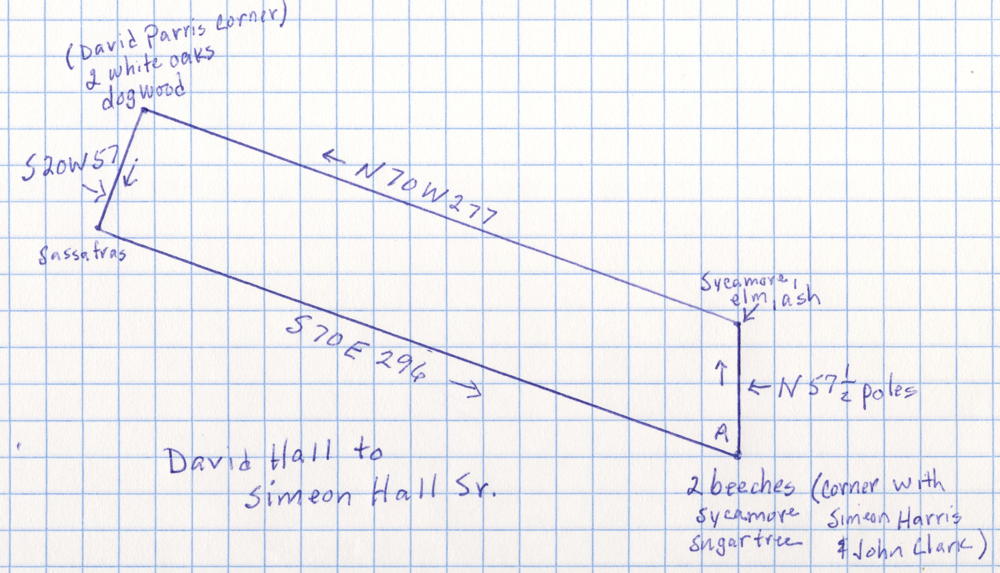 (David Parris Corner)
2 white oaks
dogwood
S20W57
← N70W277
Sassafras
Sycamore,
elm, ash
S70E 296 →
← N 57 1/2 poles
A
David Hall to
Simeon Hall Sr.
2 beeches (corner with
Sycamore Simeon Harris
sugartree & John Clark)